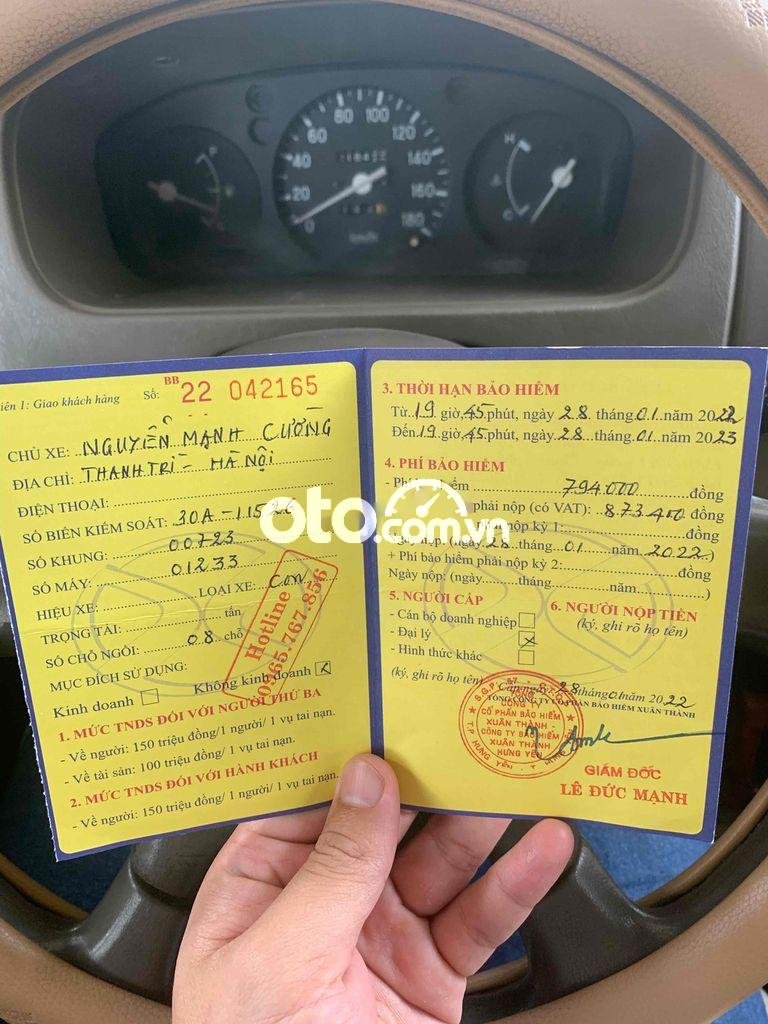 80 100
60 120
40 140
20 160
0 180
km/h
F
H
C
iên 1: Giao khách hàng Số: BB 22 042165
CHỦ XE: NGUYỄN MẠNH CƯỜNG
ĐỊA CHỈ: THANH TRÌ - HÀ NỘI
ĐIỆN THOẠI:
SỐ BIỂN KIỂM SOÁT: 30A-115
SỐ KHUNG: 00723
SỐ MÁY: 01233
HIỆU XE: LOẠI XE: Con
TRỌNG TẢI: tấn
SỐ CHỖ NGỒI: 08 chỗ
MỤC ĐÍCH SỬ DỤNG:
Kinh doanh Không kinh doanh x
Hotline
0565.767.856
1. MỨC TNDS ĐỐI VỚI NGƯỜI THỨ BA
- Về người: 150 triệu đồng/1 người/ 1 vụ tai nạn.
- Về tài sản: 100 triệu đồng/ 1 vụ tai nạn.
2. MỨC TNDS ĐỐI VỚI HÀNH KHÁCH
- Về người: 150 triệu đồng/ 1 người/ 1 vụ tai nạn.
3. THỜI HẠN BẢO HIỂM
Từ 19 giờ 45 phút, ngày 28 tháng 01 năm 2022
Đến 19 giờ 45 phút, ngày 28 tháng 01 năm 2023
4. PHÍ BẢO HIỂM
- Phí hiểm 794000 đồng
phải nộp (có VAT): 873400 đồng
nộp kỳ 1: đồng
Ngày nộp: (ngày 28 tháng 01 năm 2022)
+ Phí bảo hiểm phải nộp kỳ 2: đồng
Ngày nộp: (ngày tháng năm )
5. NGƯỜI CẤP
- Cán bộ doanh nghiệp
- Đại lý x
- Hình thức khác
(ký, ghi rõ họ tên)
6. NGƯỜI NỘP TIỀN
(ký, ghi rõ họ tên)
Cấp ngày 28 tháng 01 năm 2022
TỔNG CÔNG TY CỔ PHẦN BẢO HIỂM XUÂN THÀNH
CÔNG TY
CỔ PHẦN BẢO HIỂM
XUÂN THÀNH -
CÔNG TY BẢO HIỂM
XUÂN THÀNH
HƯNG YÊN
GIÁM ĐỐC
LÊ ĐỨC MẠNH
oto.com.vn